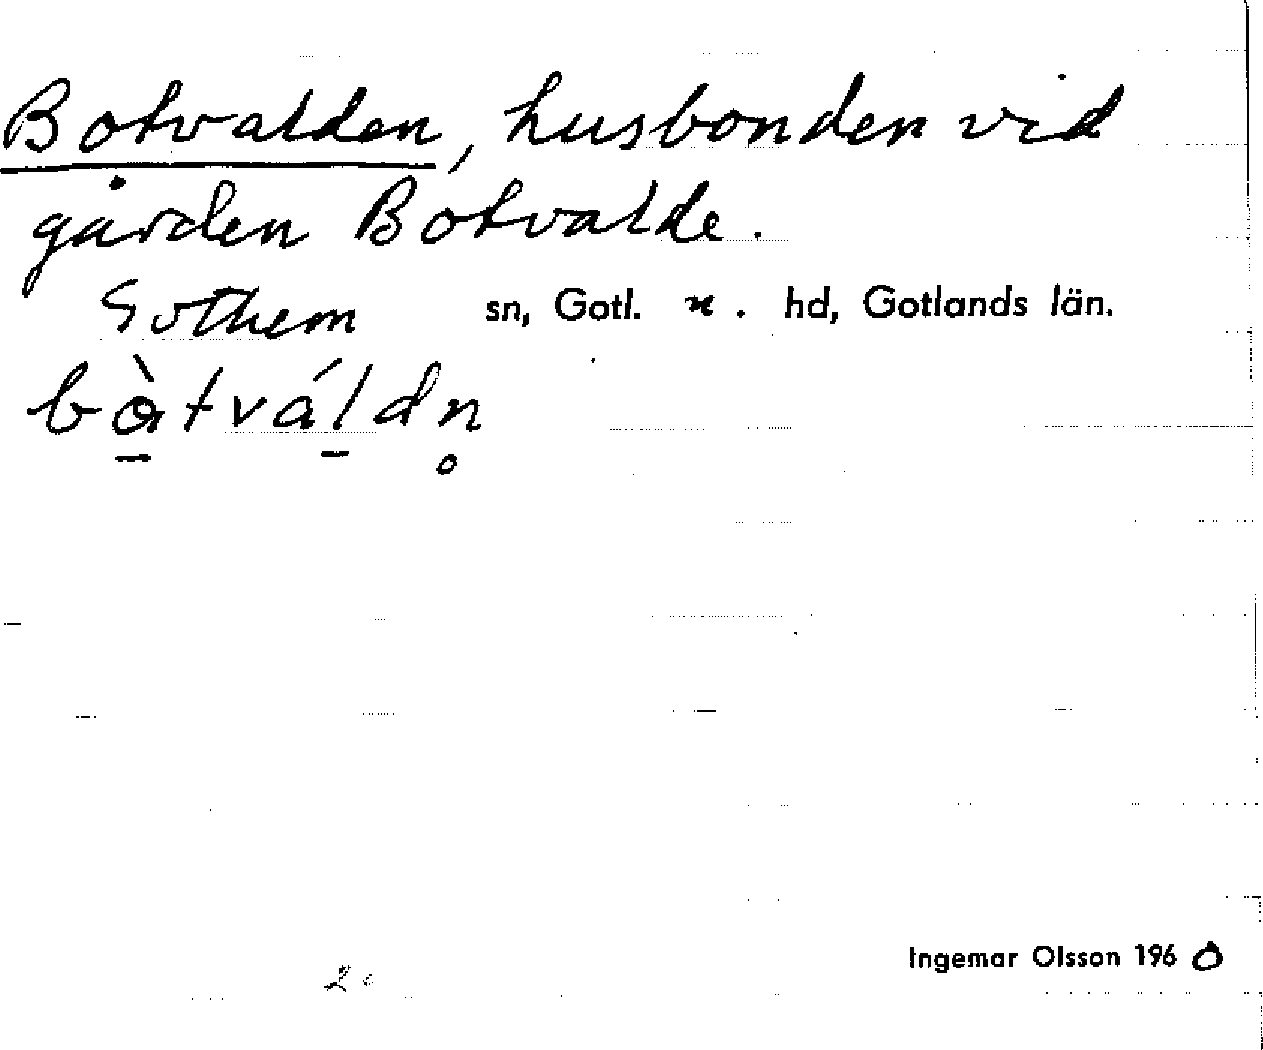 Botvalden, husbonden vid
gården Botvalde.
Gothem sn, Gotl. n. hd, Gotlands län.
bɑ̠̀tvál̠dn̥
Ingemar Olsson 1960